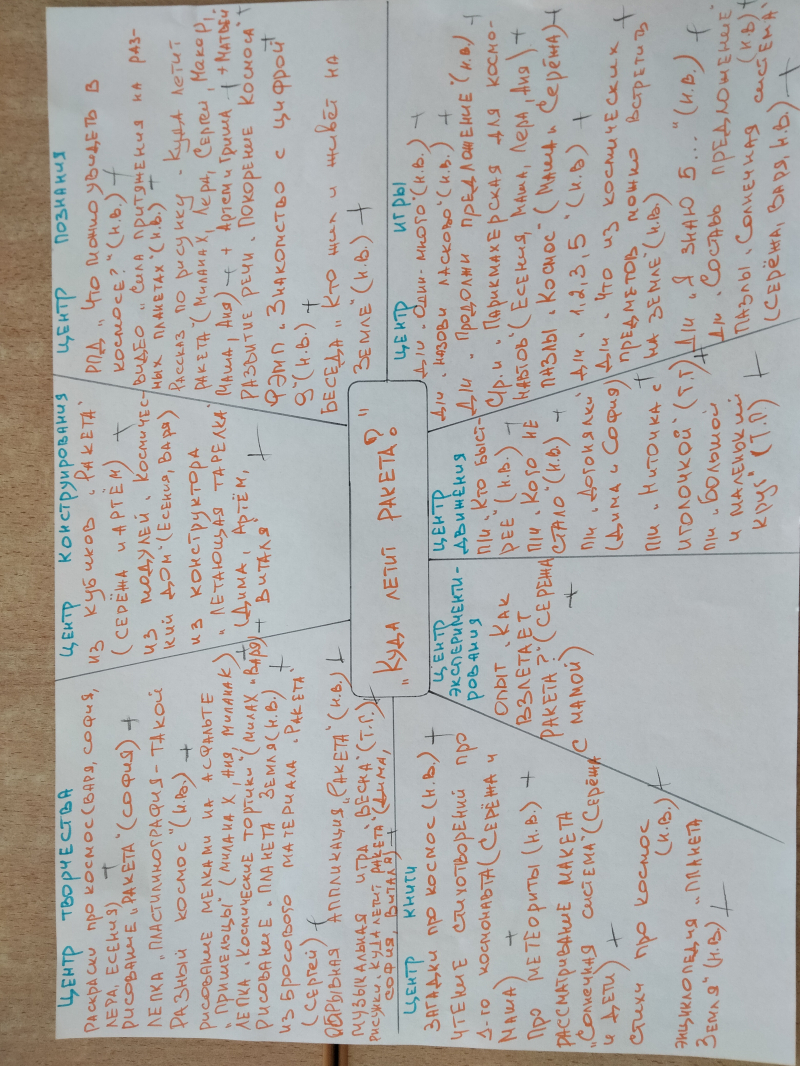 ЦЕНТР ТВОРЧЕСТВА
РАСКРАСКИ ПРО КОСМОС (ВАРЯ, СОФИЯ,
ЛЕРА, ЕСЕНИЯ) +
РИСОВАНИЕ „РАКЕТА" (СОФИЯ) +
ЛЕПКА „ПЛАСТИЛИНОГРАФИЯ - ТАКОЙ
РАЗНЫЙ КОСМОС" (Н.В.) +
РИСОВАНИЕ МЕЛКАМИ НА АСФАЛЬТЕ
„ПРИШЕЛЬЦЫ" (МИЛАНА Х, АНЯ, МИЛАНА К)
ЛЕПКА „КОСМИЧЕСКИЕ ТОРТИКИ" (МИЛАХ „ВАРЯ) +
РИСОВАНИЕ „ПЛАНЕТА ЗЕМЛЯ (Н.В.) +
ИЗ БРОСОВОГО МАТЕРИАЛА „РАКЕТА"
(СЕРГЕЙ) +
ОБРЫВНАЯ АППЛИКАЦИЯ „РАКЕТА" (Н.В.) +
МУЗЫКАЛЬНАЯ ИГРА „ВЕСНА" (Т.Г.) +
РИСУНКИ „КУДА ЛЕТИТ РАКЕТА" (ДИМА,
СОФИЯ, ВИТАЛЯ) +
ЦЕНТР КОНСТРУИРОВАНИЯ
ИЗ КУБИКОВ „РАКЕТА"
(СЕРЁЖА И АРТЁМ) +
ИЗ МОДУЛЕЙ „КОСМИЧЕС-
КИЙ ДОМ" (ЕСЕНИЯ, ВАРЯ)
ИЗ КОНСТРУКТОРА
„ЛЕТАЮЩАЯ ТАРЕЛКА"
(ДИМА, АРТЁМ,
ВИТАЛЯ +
ЦЕНТР ПОЗНАНИЯ
РПД „ЧТО МОЖНО УВИДЕТЬ В
КОСМОСЕ?" (Н.В.) +
ВИДЕО „СИЛА ПРИТЯЖЕНИЯ НА РАЗ-
НЫХ ПЛАНЕТАХ" (Н.В.) +
РАССКАЗ ПО РИСУНКУ „КУДА ЛЕТИТ
РАКЕТА" (МИЛАНА Х, ЛЕРА, СЕРГЕЙ, МАКАР,
МАША, АНЯ) + + АРТЕМ И ГРИША + + МАТВЕЙ
РАЗВИТИЕ РЕЧИ „ПОКОРЕНИЕ КОСМОСА" +
ФЭМП „ЗНАКОМСТВО С ЦИФРОЙ
9" (Н.В.) +
БЕСЕДА „КТО ЖИЛ И ЖИВЁТ НА
ЗЕМЛЕ" (Н.В.) +
„КУДА ЛЕТИТ РАКЕТА?"
ЦЕНТР КНИГИ
ЗАГАДКИ ПРО КОСМОС (Н.В.) +
ЧТЕНИЕ СТИХОТВОРЕНИЙ ПРО
1-ГО КОСМОНАВТА (СЕРЁЖА И
МАША) +
ПРО МЕТЕОРИТЫ (Н.В.) +
РАССМАТРИВАНИЕ МАКЕТА
„СОЛНЕЧНАЯ СИСТЕМА" (СЕРЁЖА
И ДЕТИ) +
СТИХИ ПРО КОСМОС
(Н.В.) +
ЭНЦИКЛОПЕДИЯ „ПЛАНЕТА
ЗЕМЛЯ" (Н.В.) +
ЦЕНТР
ЭКСПЕРИМЕНТИ-
РОВАНИЯ
ОПЫТ „КАК
ВЗЛЕТАЕТ
РАКЕТА?" (СЕРЁЖА
С МАМОЙ) +
ЦЕНТР
ДВИЖЕНИЯ
П/И „КТО БЫСТ-
РЕЕ" (Н.В.) +
П/И „КОГО НЕ
СТАЛО" (Н.В.) +
П/И „ДОГОНЯЛКИ"
(ДИМА И СОФИЯ)
П/И „НИТОЧКА С +
ИГОЛОЧКОЙ" (Т.Г) +
П/И „БОЛЬШОЙ
И МАЛЕНЬКИЙ
КРУГ" (Т.Г) +
ЦЕНТР ИГРЫ
Д/И „ОДИН-МНОГО" (Н.В.) +
Д/И „НАЗОВИ ЛАСКОВО" (Н.В.) +
Д/И „ПРОДОЛЖИ ПРЕДЛОЖЕНИЕ" (Н.В) +
С/Р.И „ПАРИКМАХЕРСКАЯ ДЛЯ КОСМО-
НАВТОВ" (ЕСЕНИЯ, МАША, ЛЕРА, АНЯ) +
ПАЗЛЫ „КОСМОС" (МАША И СЕРЁЖА) +
Д/И „1,2,3,5" (Н.В) +
Д/И „ЧТО ИЗ КОСМИЧЕСКИХ +
ПРЕДМЕТОВ МОЖНО ВСТРЕТИТЬ
НА ЗЕМЛЕ" (Н.В)
Д/И „Я ЗНАЮ 5..." (Н.В.) +
Д/И „СОСТАВЬ ПРЕДЛОЖЕНИЕ" +
(Н.В)
ПАЗЛЫ „СОЛНЕЧНАЯ СИСТЕМА"
(СЕРЁЖА, ВАРЯ, Н.В.) +